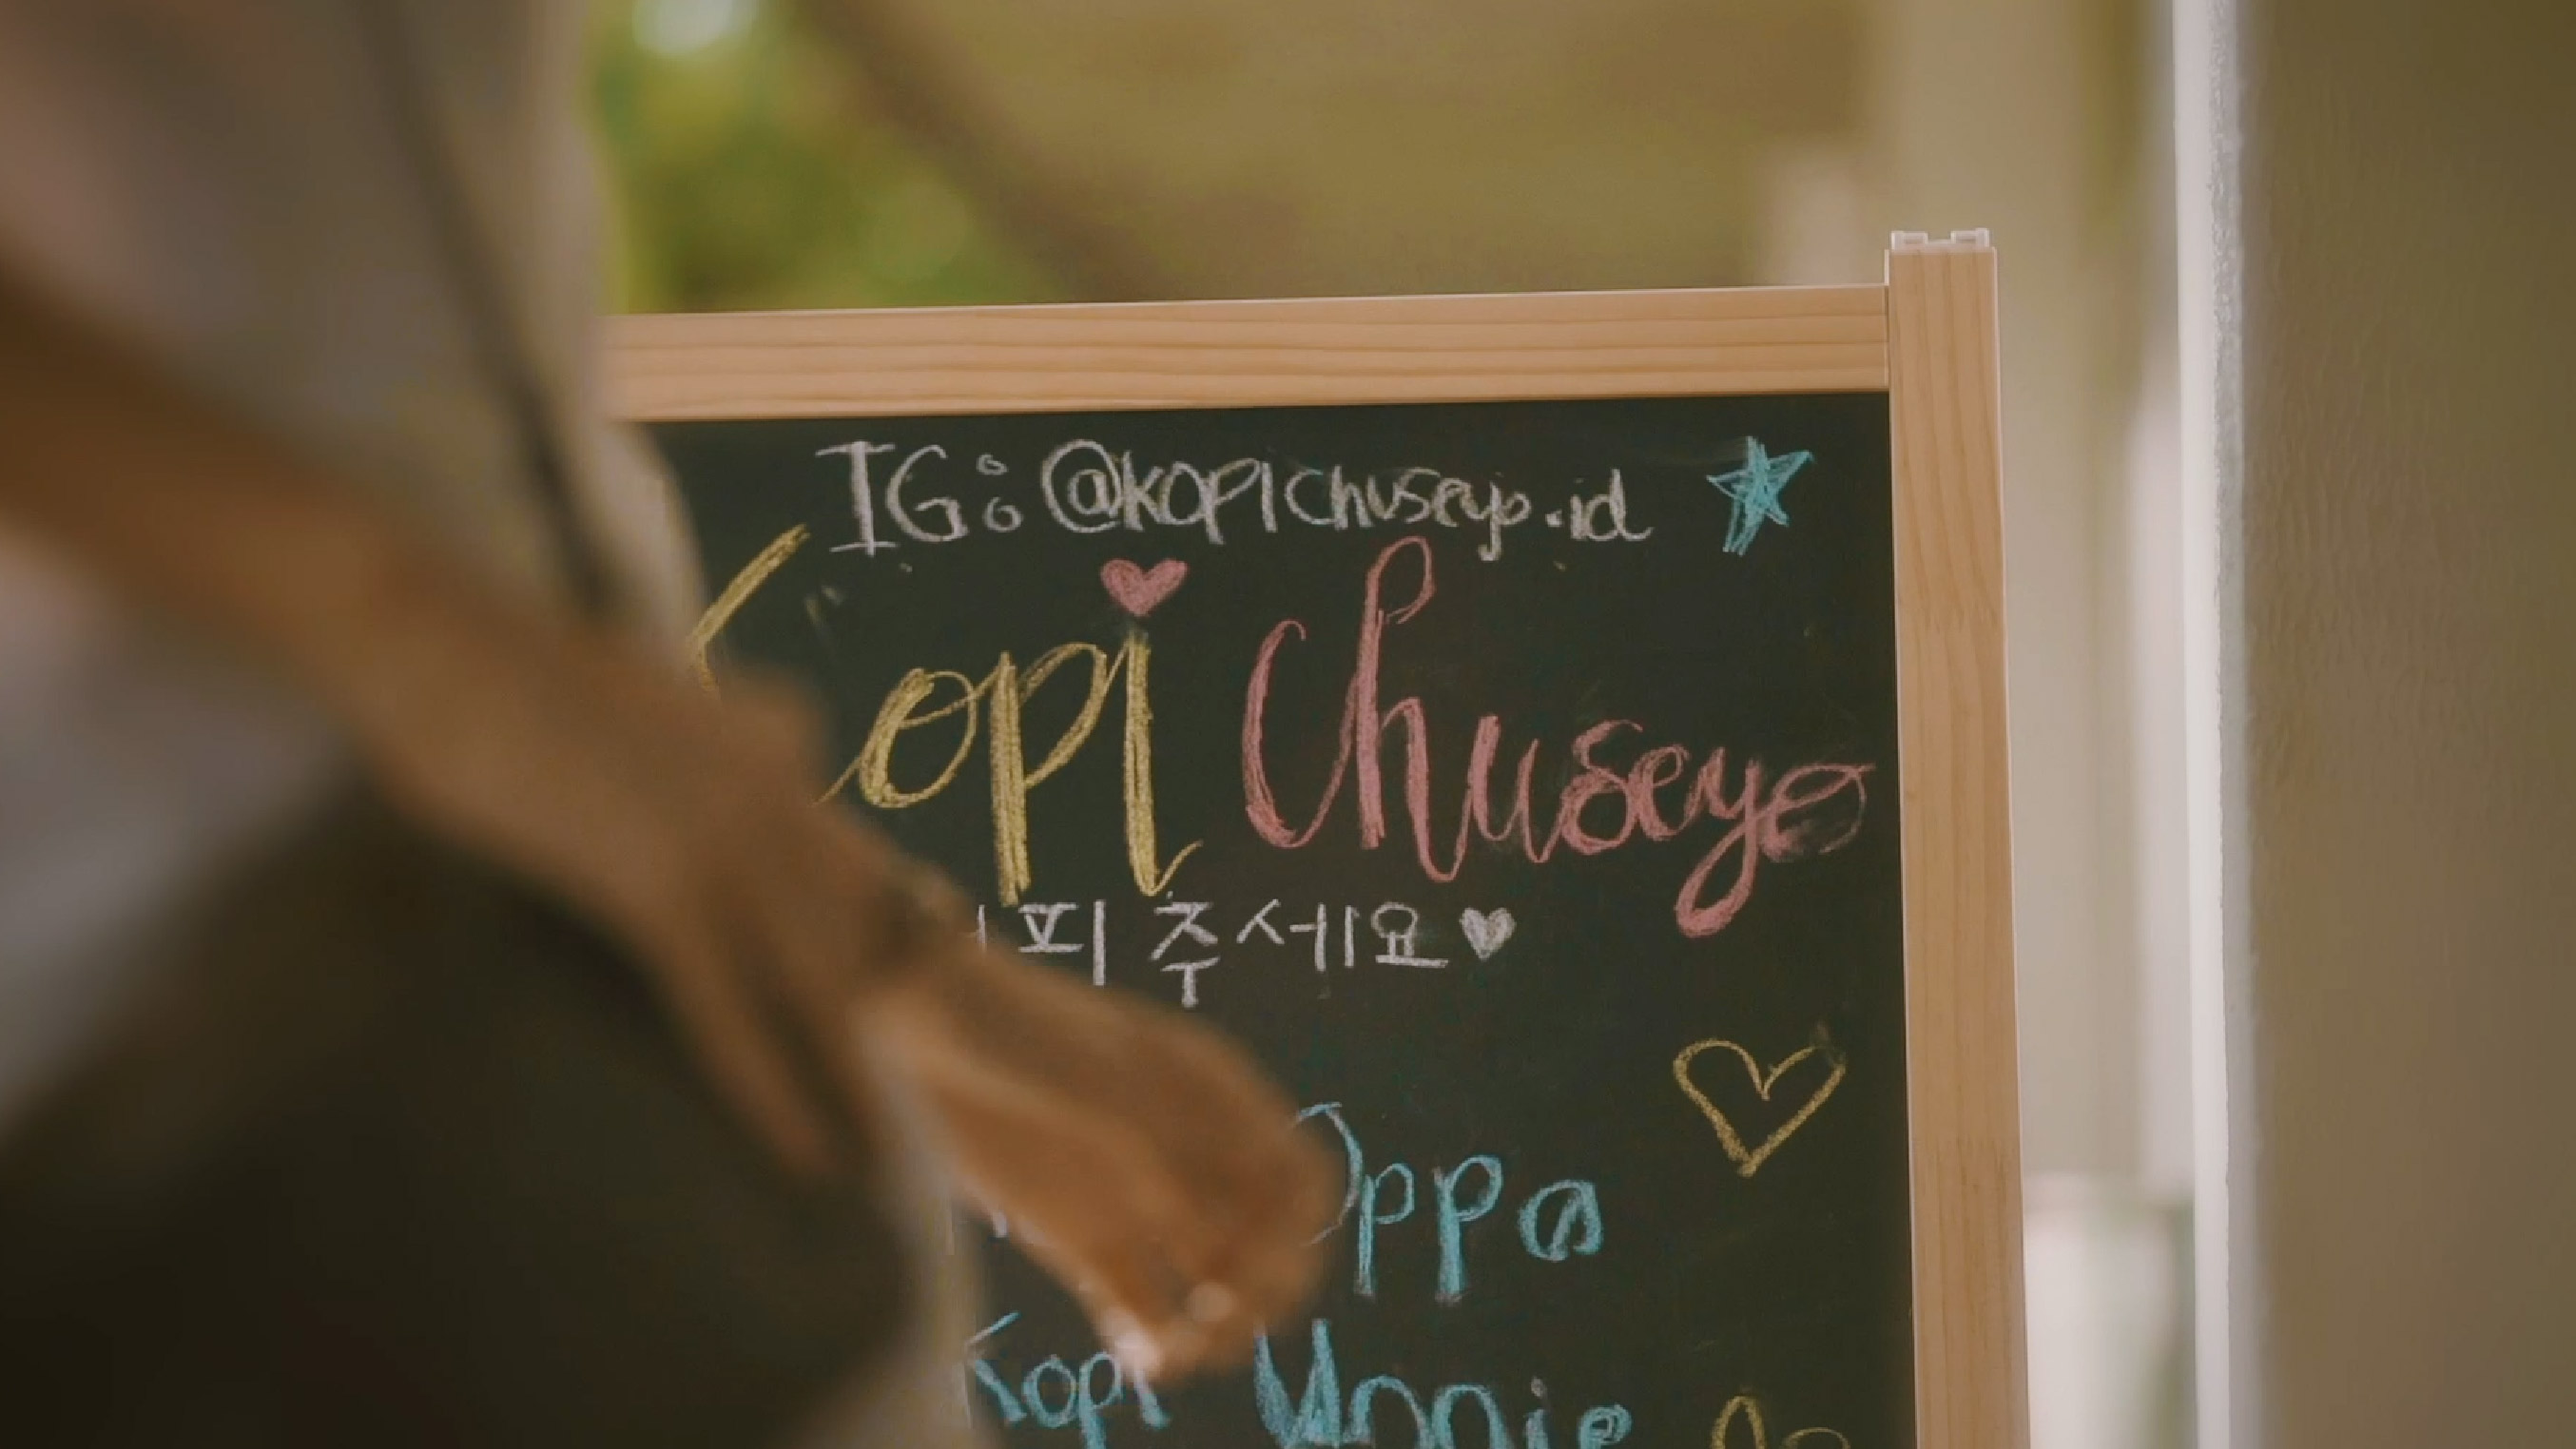 IG: @kopichuseyo.id
Kopi Chuseyo
커피 주세요
Oppa
Kopi Unnie